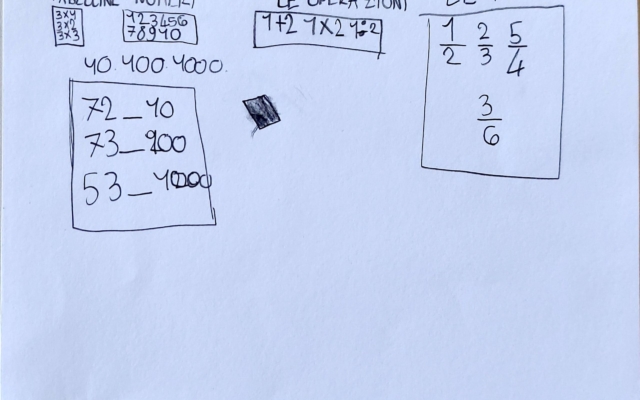 TABELLINE NUMERI LE OPERAZIONI
3X1
3X2
3X3
123456
78910
1+2 1X2 1:2
1/2 2/3 5/4
3/6
10.100.1000.
72_10
73_100
53_1000